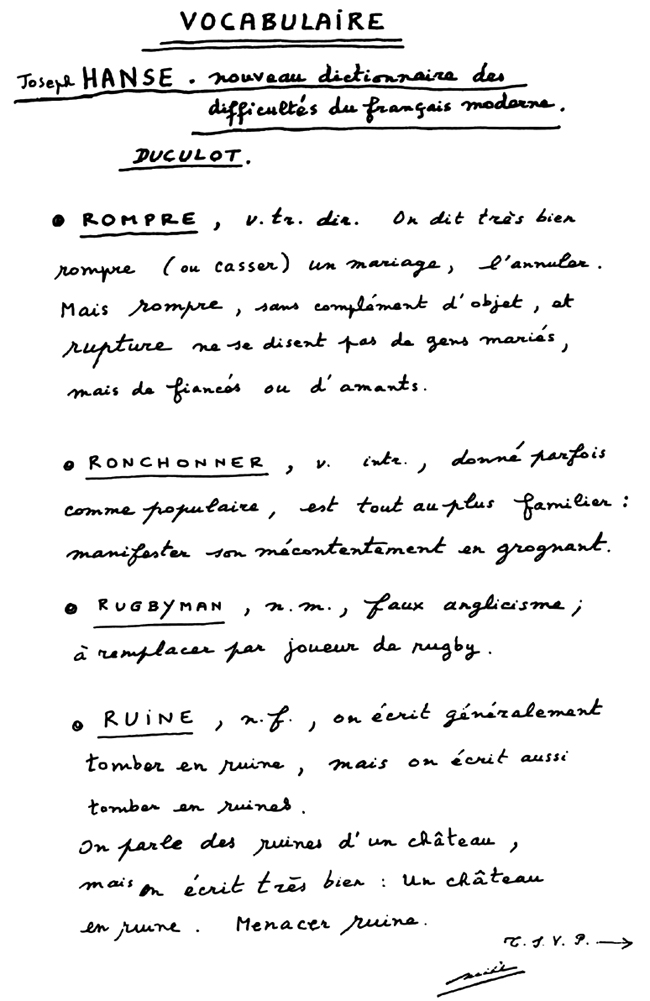 VOCABULAIRE
Joseph HANSE. nouveau dictionnaire des
difficultés du français moderne.
DUCULOT.
• ROMPRE, v. tr. dir. On dit très bien
rompre (ou casser) un mariage, l'annuler.
Mais rompre, sans complément d'objet, et
rupture ne se disent pas de gens mariés,
mais de fiancés ou d'amants.
• RONCHONNER, v. intr., donné parfois
comme populaire, est tout au plus familier :
manifester son mécontentement en grognant.
• RUGBYMAN, n.m., faux anglicisme ;
à remplacer par joueur de rugby.
• RUINE, n.f., on écrit généralement
tomber en ruine, mais on écrit aussi
tomber en ruines.
On parle des ruines d'un château,
mais on écrit très bien : Un château
en ruine. Menacer ruine.
T.S.V.P. →